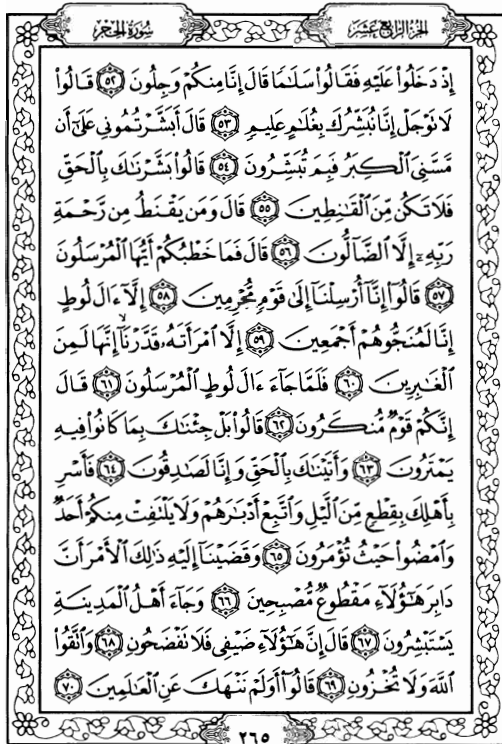 الجزء الرابع عشر
سورة الحجر
إِذْ دَخَلُواْ عَلَيْهِ فَقَالُواْ سَلَٰمًا قَالَ إِنَّا مِنكُمْ وَجِلُونَ ٥٢ قَالُواْ
لَا تَوْجَلْ إِنَّا نُبَشِّرُكَ بِغُلَٰمٍ عَلِيمٍ ٥٣ قَالَ أَبَشَّرْتُمُونِي عَلَىٰٓ أَن
مَّسَّنِيَ ٱلْكِبَرُ فَبِمَ تُبَشِّرُونَ ٥٤ قَالُواْ بَشَّرْنَٰكَ بِٱلْحَقِّ
فَلَا تَكُن مِّنَ ٱلْقَٰنِطِينَ ٥٥ قَالَ وَمَن يَقْنَطُ مِن رَّحْمَةِ
رَبِّهِۦٓ إِلَّا ٱلضَّآلُّونَ ٥٦ قَالَ فَمَا خَطْبُكُمْ أَيُّهَا ٱلْمُرْسَلُونَ
٥٧ قَالُوٓاْ إِنَّآ أُرْسِلْنَآ إِلَىٰ قَوْمٍ مُّجْرِمِينَ ٥٨ إِلَّآ ءَالَ لُوطٍ
إِنَّا لَمُنَجُّوهُمْ أَجْمَعِينَ ٥٩ إِلَّا ٱمْرَأَتَهُۥ قَدَّرْنَآ إِنَّهَا لَمِنَ
ٱلْغَٰبِرِينَ ٦٠ فَلَمَّا جَآءَ ءَالَ لُوطٍ ٱلْمُرْسَلُونَ ٦١ قَالَ
إِنَّكُمْ قَوْمٌ مُّنكَرُونَ ٦٢ قَالُواْ بَلْ جِئْنَٰكَ بِمَا كَانُواْ فِيهِ
يَمْتَرُونَ ٦٣ وَأَتَيْنَٰكَ بِٱلْحَقِّ وَإِنَّا لَصَٰدِقُونَ ٦٤ فَأَسْرِ
بِأَهْلِكَ بِقِطْعٍ مِّنَ ٱلَّيْلِ وَٱتَّبِعْ أَدْبَٰرَهُمْ وَلَا يَلْتَفِتْ مِنكُمْ أَحَدٌ
وَٱمْضُواْ حَيْثُ تُؤْمَرُونَ ٦٥ وَقَضَيْنَآ إِلَيْهِ ذَٰلِكَ ٱلْأَمْرَ أَنَّ
دَابِرَ هَٰٓؤُلَآءِ مَقْطُوعٌ مُّصْبِحِينَ ٦٦ وَجَآءَ أَهْلُ ٱلْمَدِينَةِ
يَسْتَبْشِرُونَ ٦٧ قَالَ إِنَّ هَٰٓؤُلَآءِ ضَيْفِي فَلَا تَفْضَحُونِ ٦٨ وَٱتَّقُواْ
ٱللَّهَ وَلَا تُخْزُونِ ٦٩ قَالُوٓاْ أَوَلَمْ نَنْهَكَ عَنِ ٱلْعَٰلَمِينَ ٧٠
٢٦٥